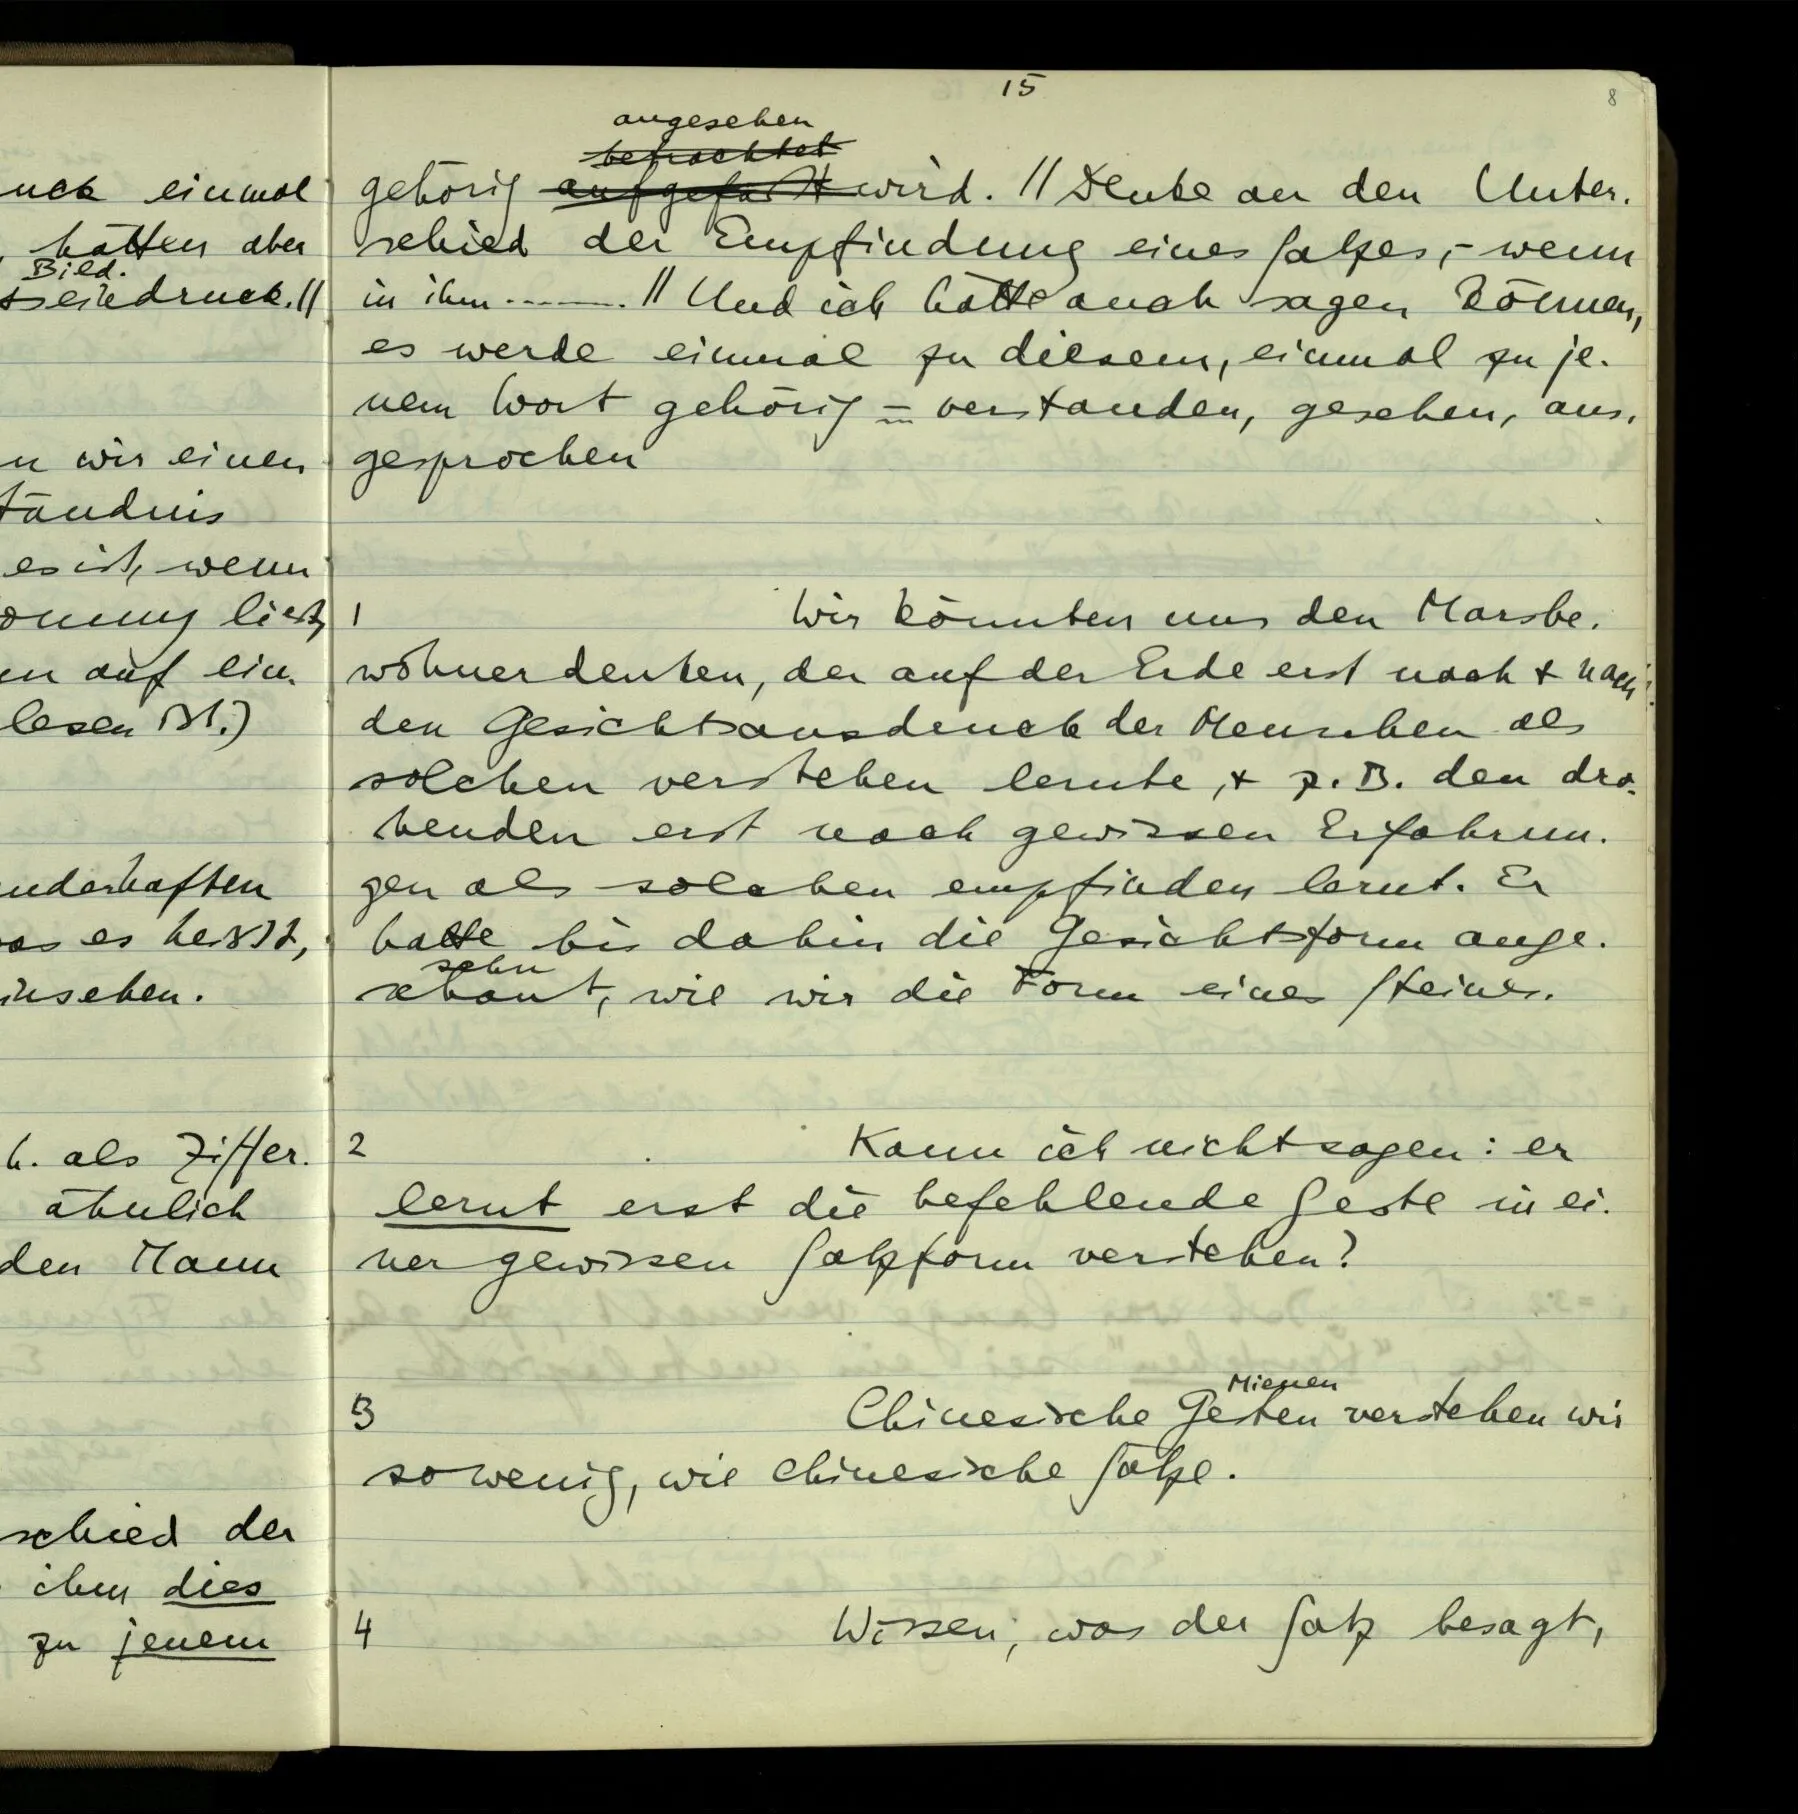 uck einmal
, hätten aber
Bild.
tseindruck.//
n wir einen
tändnis
es ist, wenn
onung liest,
en auf ein-
lesen ist.)
underhaften
was es heisst,
insehen.
h. als Ziffer.
ähnlich
den Mann
schied der
ihm dies
zu jenem
15
8
angesehen
betrachtet
gehörig aufgefaßt wird. // Denke an den Unter-
schied der Empfindung eines Satzes, – wenn
in ihm ------. // Und ich hätte auch sagen können,
es werde einmal zu diesem, einmal zu je-
nem Wort gehörig – verstanden, gesehen, aus-
gesprochen
1 Wir könnten uns den Marsbe-
wohner denken, der auf der Erde erst nach + nach
den Gesichtsausdruck der Menschen als
solchen verstehen lernte, + z.B. den dro-
henden erst nach gewissen Erfahrun-
gen als solchen empfinden lernt. Er
hatte bis dahin die Gesichtsform ange-
sehn
schaut, wie wir die Form eines Steines.
2 Kann ich nicht sagen: er
lernt erst die befehlende Geste in ei-
ner gewissen Satzform verstehen?
Mienen
3 Chinesische Gesten verstehen wir
sowenig, wie chinesische Sätze.
4 Wissen, was der Satz besagt,